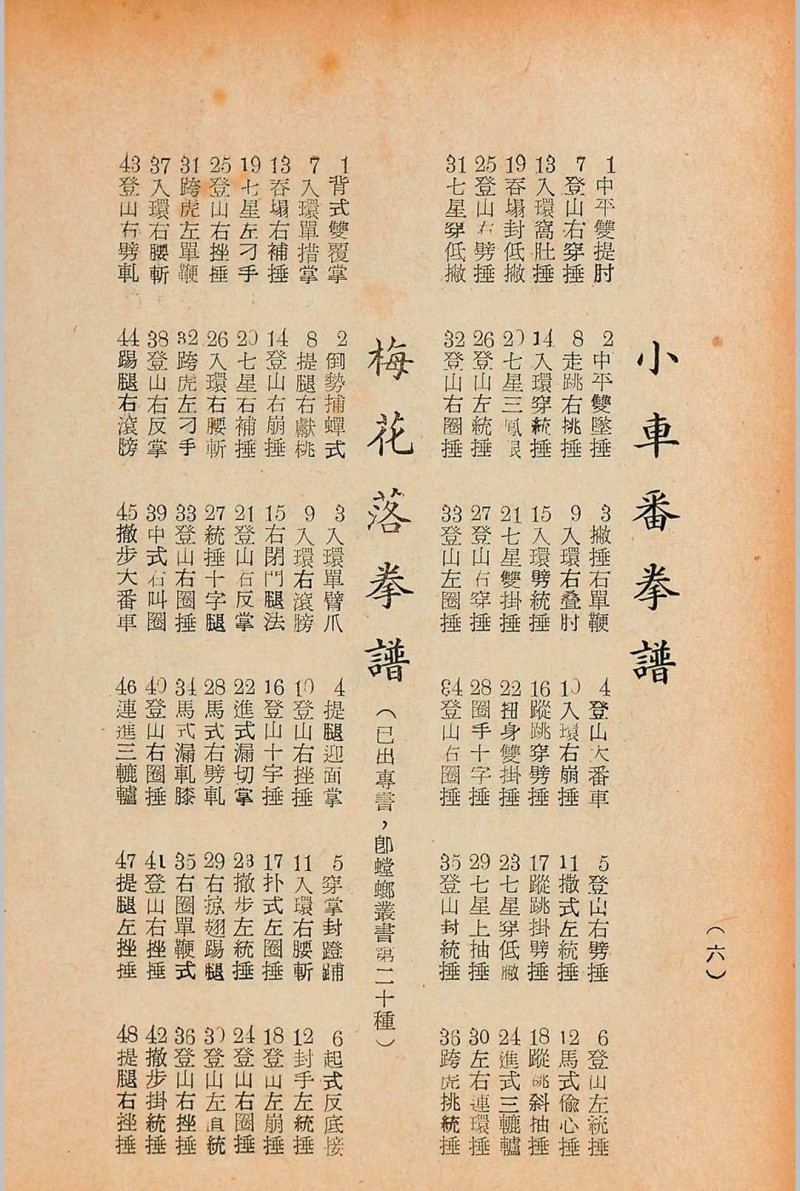 （六）
小車番拳譜
1中平雙提肘 2中平雙墜捶 3撇捶右單鞭 4登山大番車 5登山右劈捶 6登山左統捶
7登山右穿捶 8走跳右挑捶 9入環右叠肘 10入環右崩捶 11撒式左統捶 12馬式偷心捶
13入環窩肚捶 14入環穿統捶 15入環劈統捶 16蹤跳穿劈捶 17蹤跳掛劈捶 18蹤跳斜抽捶
19吞塌封低撇 20七星三 21七星雙掛捶 22扭身雙掛捶 23七星穿低撇 24進式三轆轤
25登山右劈捶 26登山左統捶 27登山右穿捶 28圈手十字捶 29七星上抽捶 30左右連環捶
31七星穿低撇 32登山右圈捶 33登山左圈捶 34登山右圈捶 35登山封統捶 36跨虎挑統捶
梅花落拳譜（已出專書，卽螳螂叢書第二十種）
1背式雙覆掌 2倒勢捕蟬式 3入環單臂爪 4提腿迎面掌 5穿掌封蹬蹄 6起式反底接
7入環單措掌 8提腿右獻桃 9入環右滾膀 10登山右挫捶 11入環右腰斬 12封手左統捶
13吞塌右補捶 14登山右崩捶 15右閉門腿法 16登山十字捶 17扑式左圈捶 18登山左崩捶
19七星左刁手 20七星右補捶 21登山右反掌 22進式漏切掌 23撤步左統捶 24登山右圈捶
25登山右挫捶 26入環右腰斬 27統捶十字腿 28馬式右劈軋 29右掠翅踢腿 30登山左直統
31跨虎左單鞭 32跨虎左刁手 33登山右圈捶 34馬式漏軋膝 35右圈單鞭式 36登山右挫捶
37入環右腰斬 38登山右反掌 39中式右叫圈 40登山右圈捶 41登山右挫捶 42撤步掛統捶
43登山右劈軋 44踢腿右滾膀 45撤步大番車 46連進三轆轤 47提腿左挫捶 48提腿右挫捶